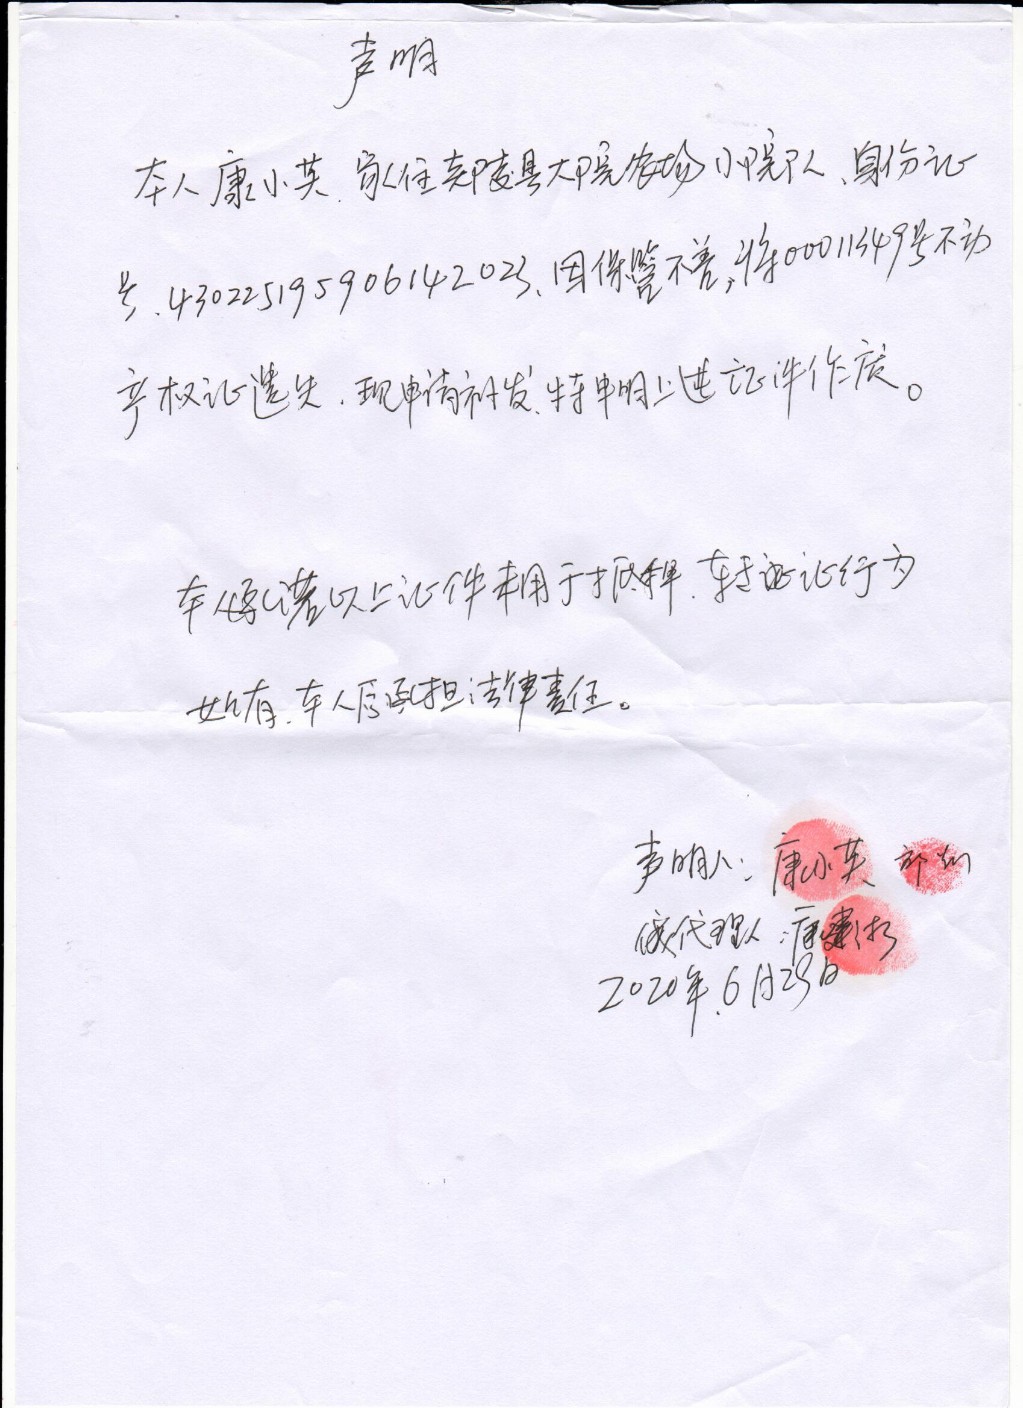 声明
本人康小英、家住炎陵县大院农场小院队、身份证
号、430225195906142023、因保管不善,将00011349号不动
产权证遗失.现申请补发、特申明上述证件作废。
本人承诺以上证件未用于抵押、转让证行为
如有、本人后承担法律责任。
声明人:康小英
代理人:康建
2020年.6月29日